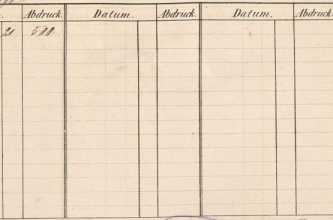 Abdruck. Datum. Abdruck. Datum. Abdruck.
21 500